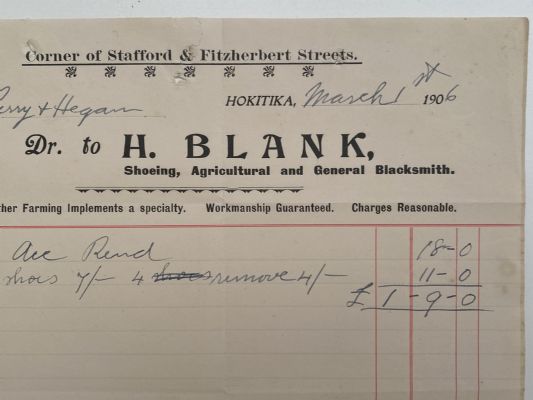 Corner of Stafford & Fitzherbert Streets.
Perry & Hegam
HOKITIKA, March 1st 1906
Dr. to H. BLANK,
Shoeing, Agricultural and General Blacksmith.
ther Farming Implements a specialty. Workmanship Guaranteed. Charges Reasonable.
Acc Rend 18-0
shoes 7/- 4 shoes remove 4/- 11-0
£ 1-9-0